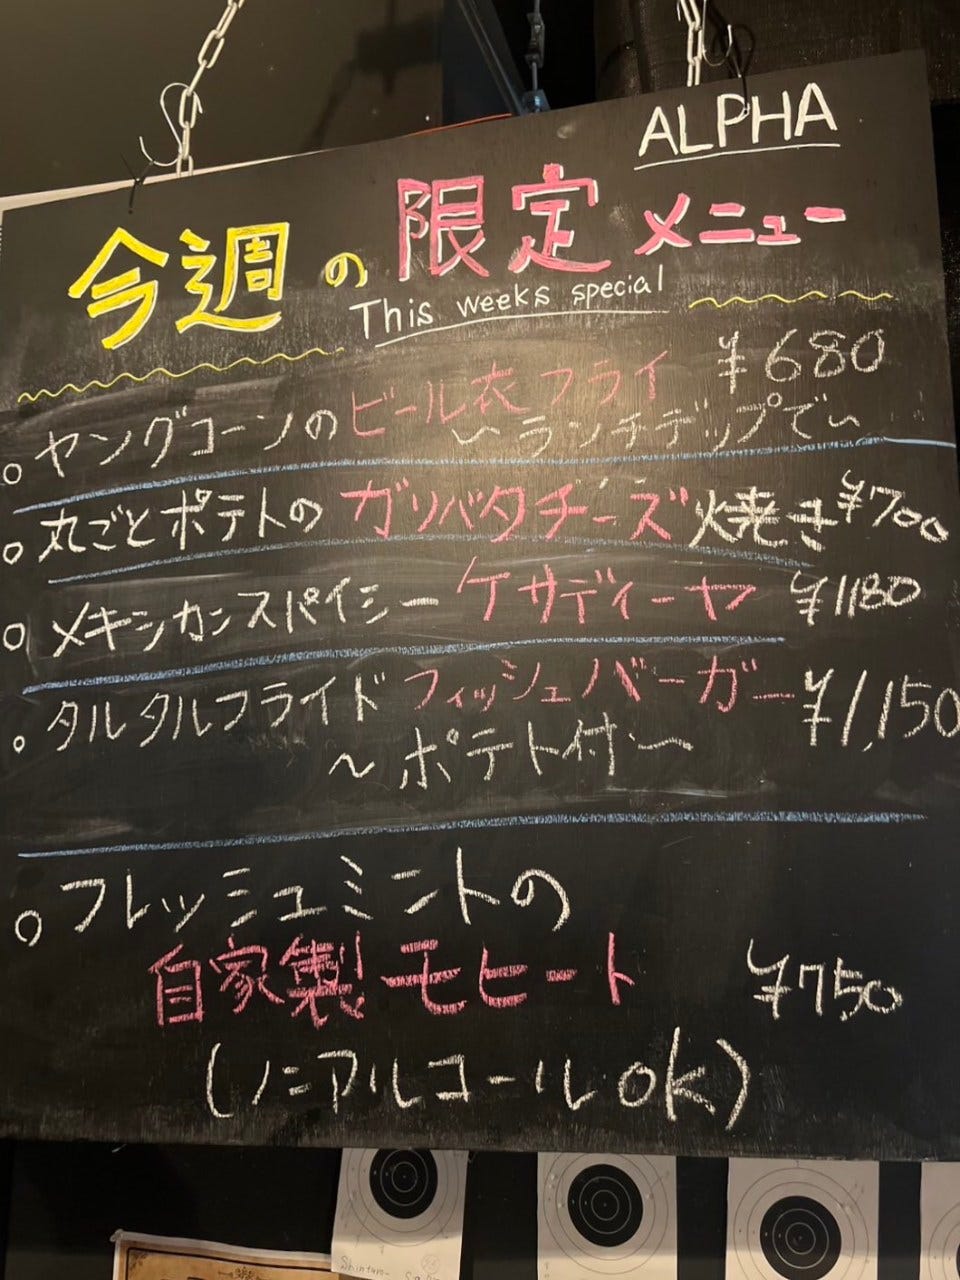 ALPHA
今週の限定メニュー
This weeks special
。ヤングコーンのビール衣フライ ¥680
〜ランチディップで〜
。丸ごとポテトのガリバタチーズ焼き ¥700
。メキシカンスパイシーケサディーヤ ¥1180
。タルタルフライドフィッシュバーガー ¥1,150
〜ポテト付〜
。フレッシュミントの
自家製モヒート ¥750
(ノンアルコールok)